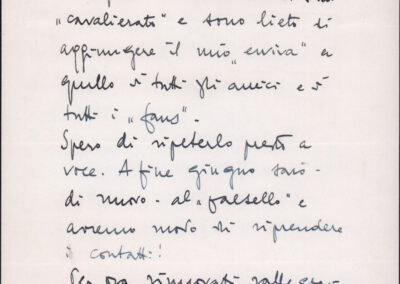 "cavalierato" e sono lieto di
aggiungere il mio "evviva" a
quello di tutti gli amici e di
tutti i "fans".
Spero di ripeterlo presto a
voce. A fine giugno sarò
di nuovo al "falsello" e
avremo modo di riprendere
i contatti!
Per ora rinnovati rallegra-